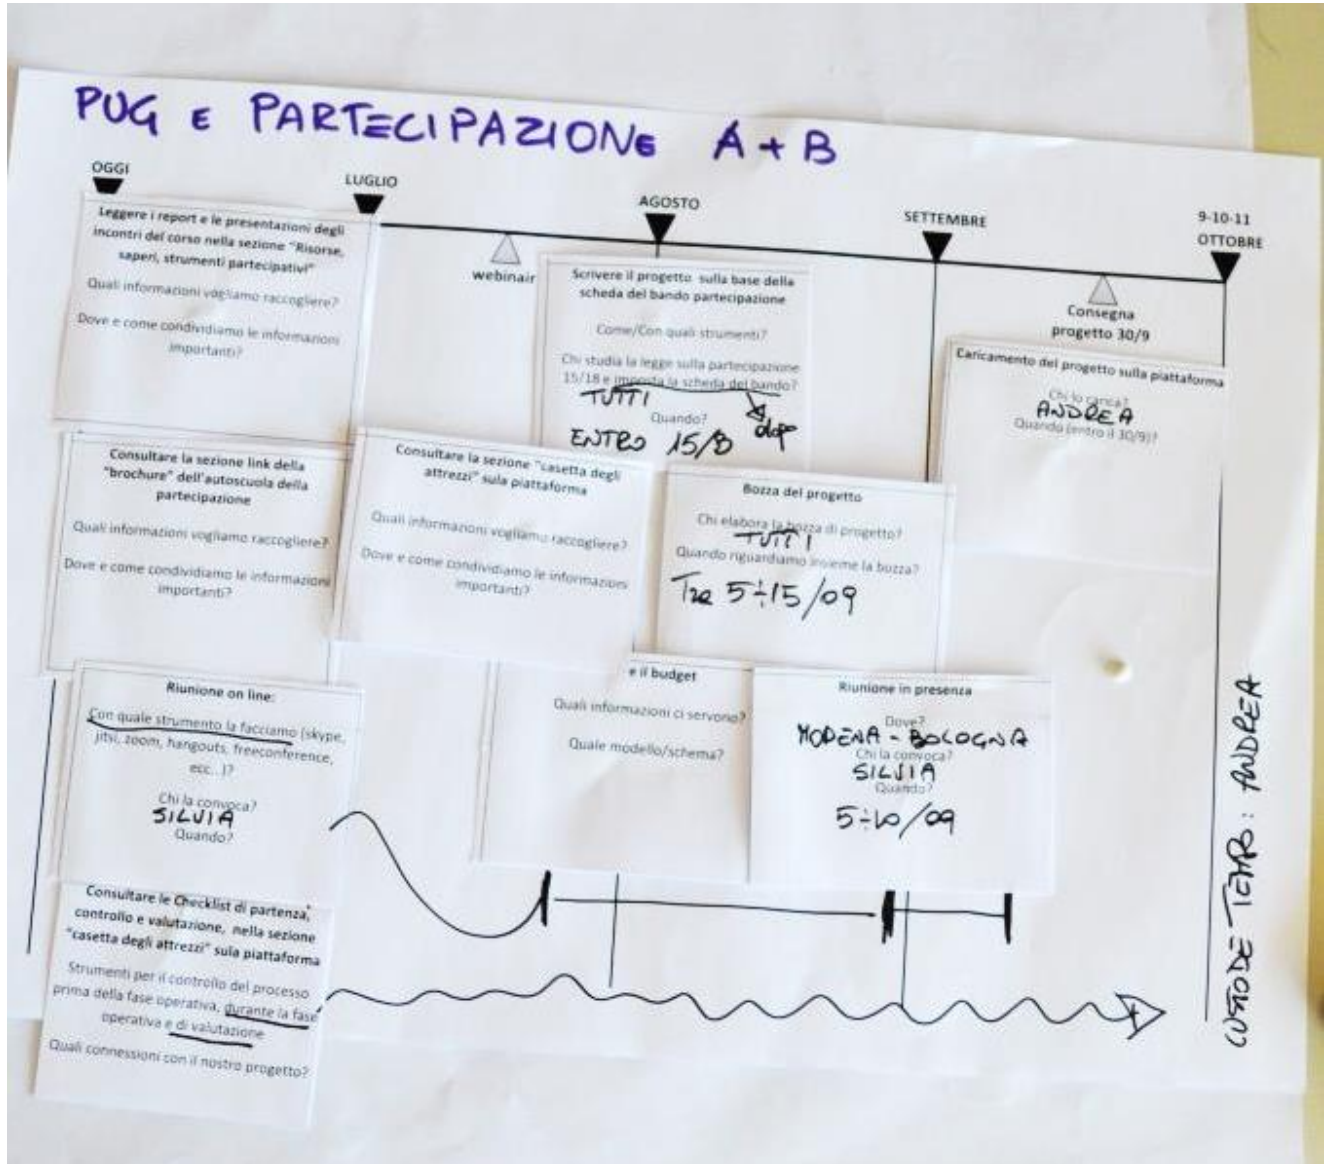 PUG E PARTECIPAZIONE A + B
OGGI
LUGLIO
AGOSTO
SETTEMBRE
9-10-11
OTTOBRE
webinair
Consegna
progetto 30/9
Leggere i report e le presentazioni degli
incontri del corso nella sezione "Risorse,
saperi, strumenti partecipativi"
Quali informazioni vogliamo raccogliere?
Dove e come condividiamo le informazioni
importanti?
Scrivere il progetto sulla base della
scheda del bando partecipazione
Come/Con quali strumenti?
Chi studia la legge sulla partecipazione
15/18 e imposta la scheda del bando?
TUTTI
dopo
Quando?
ENTRO 15/8
Caricamento del progetto sulla piattaforma
Chi lo carica?
ANDREA
Quando (entro il 30/9)?
Consultare la sezione link della
"brochure" dell'autoscuola della
partecipazione
Quali informazioni vogliamo raccogliere?
Dove e come condividiamo le informazioni
importanti?
Consultare la sezione "casetta degli
attrezzi" sula piattaforma
Quali informazioni vogliamo raccogliere?
Dove e come condividiamo le informazioni
importanti?
Bozza del progetto
Chi elabora la bozza di progetto?
TUTTI
Quando riguardiamo insieme la bozza?
Tra 5÷15/09
Riunione on line:
Con quale strumento la facciamo (skype,
jitsi, zoom, hangouts, freeconference,
ecc...)?
Chi la convoca?
SILVIA
Quando?
e il budget
Quali informazioni ci servono?
Quale modello/schema?
Riunione in presenza
Dove?
MODENA - BOLOGNA
Chi la convoca?
SILVIA
Quando?
5÷10/09
Consultare le Checklist di partenza,
controllo e valutazione, nella sezione
"casetta degli attrezzi" sula piattaforma
Strumenti per il controllo del processo
prima della fase operativa, durante la fase
operativa e di valutazione
Quali connessioni con il nostro progetto?
CUSTODE TEMPO: ANDREA